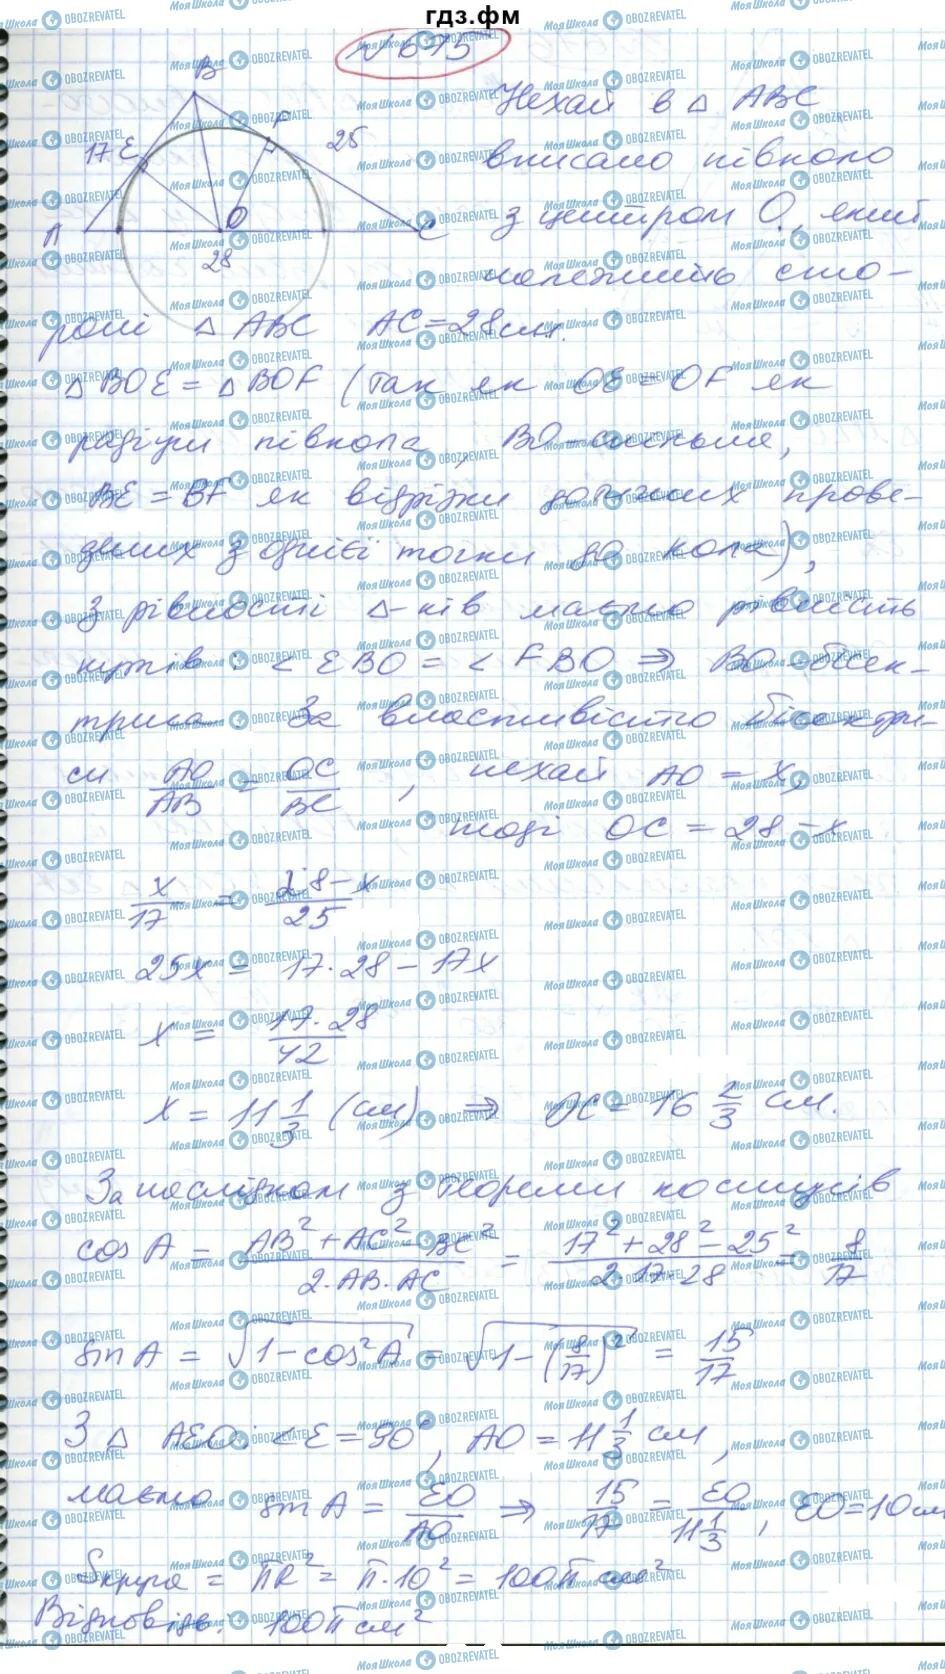 гдз.фм
N 675
B
F
E
17
25
A
O
C
28
Нехай в △ ABC
вписано півколо
з центром O, який
належить сто-
роні △ ABC AC = 28 см.
△ BOE = △ BOF (так як OE = OF як
радіуси півкола, BO - спільна,
BE = BF як відрізки дотичних прове-
дених з однієї точки до кола),
З рівності △-ків маємо рівність
кутів: < EBO = < FBO ⇒ BO - бісек-
триса. За властивістю бісектри-
си AO/AB = OC/BC, нехай AO = x,
тоді OC = 28 - x
x/17 = 28-x/25
25x = 17 · 28 - 17x
x = 17 · 28/42
x = 11 1/3 (см) ⇒ OC = 16 2/3 см.
За наслідком з теореми косинусів
cos A = AB² + AC² - BC²/2 · AB · AC = 17² + 28² - 25²/2 · 17 · 28 = 8/17
sin A = √1 - cos² A = √1 - (8/17)² = 15/17
З △ AEO: < E = 90°, AO = 11 1/3 см,
маємо sin A = EO/AO ⇒ 15/17 = EO/11 1/3, EO = 10 см
Sкруга = πR² = π · 10² = 100π см²
Відповідь: 100π см²